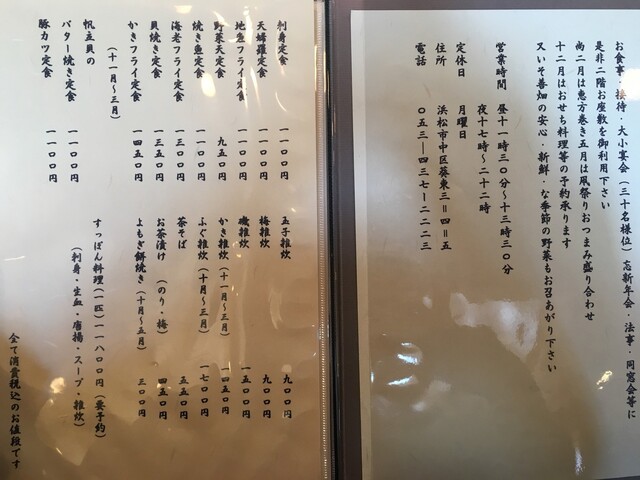 お食事・接待・大小宴会（三十名様位）忘新年会・法事・同窓会等に
是非二階お座敷を御利用下さい
尚二月は恵方巻き五月は凧祭りおつまみ盛り合わせ
十二月はおせち料理等の予約承ります
又いそ善加の安心・新鮮・な季節の野菜もお召あがり下さい
営業時間 昼十一時三〇分〜十三時三〇分
夜十七時〜二十二時
定休日 月曜日
住所 浜松市中区葵東三＝四＝五
電話 〇五三―四三七―二二二三
刺身定食 一一〇〇円
天婦羅定食 一一〇〇円
地魚フライ定食 一一〇〇円
野菜天定食 九五〇円
焼き魚定食 一一〇〇円
海老フライ定食 一三〇〇円
貝焼き定食 一三五〇円
かきフライ定食 一四五〇円
（十一月〜三月）
帆立貝の
バター焼き定食 一一〇〇円
豚カツ定食 一一〇〇円
玉子雑炊 九〇〇円
梅雑炊 九〇〇円
磯雑炊 一五〇〇円
かき雑炊（十一月〜三月） 一四五〇円
ふぐ雑炊（十月〜三月） 一七〇〇円
茶そば 五五〇円
お茶漬け（のり・梅） 四五〇円
よもぎ餅焼き（十月〜五月） 三〇〇円
すっぽん料理（一匹）一一八〇〇円（要予約）
（刺身・生血・唐揚・スープ・雑炊）
全て消費税込のお値段です